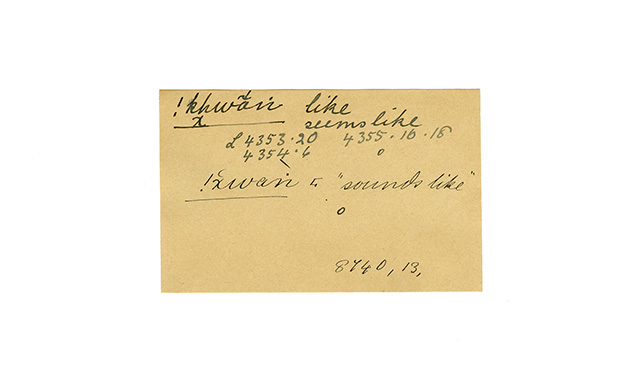 !khwăṅ like
x seems like
L 4353.20 4355.16.18
4354.6 o
!x̆waṅ "sounds like"
o
8740, 13,